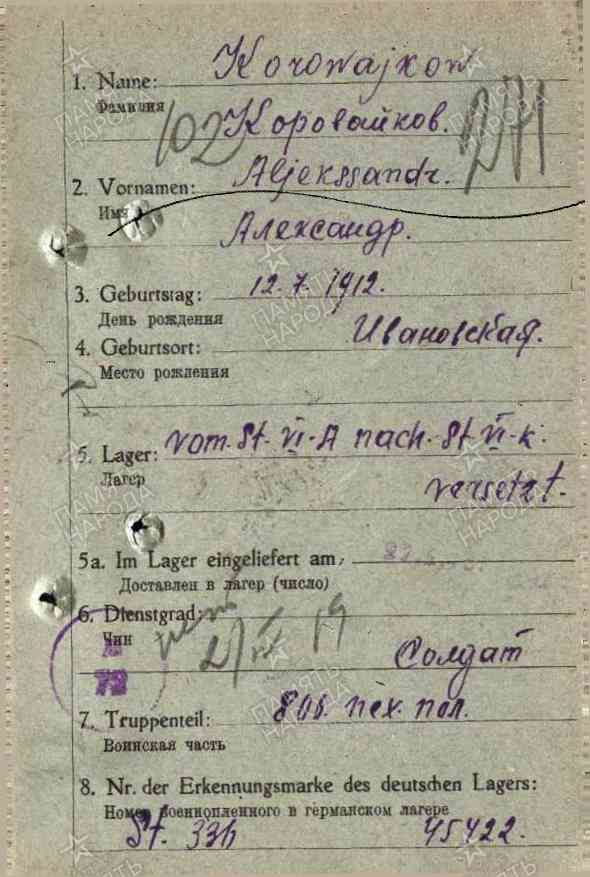 Korowajkow
1. Name:
Фамилия
102 Коровайков.
2. Vornamen: Aljekssandr.
Имя
Александр.
3. Geburtstag: 12.7.1912.
День рождения
Ивановская.
4. Geburtsort:
Место рождения
5. Lager: vom. St. VI-A nach. St VI-K.
Лагер
versetzt.
5a. Im Lager eingeliefert am:
Доставлен в лагер (число)
6. Dienstgrad:
Чин
Солдат
79
7. Truppenteil: 806. пех. пол.
Воинская часть
8. Nr. der Erkennungsmarke des deutschen Lagers:
Номер военнопленного в германском лагере
St. 336 45422.
ПАМЯТЬ НАРОДА